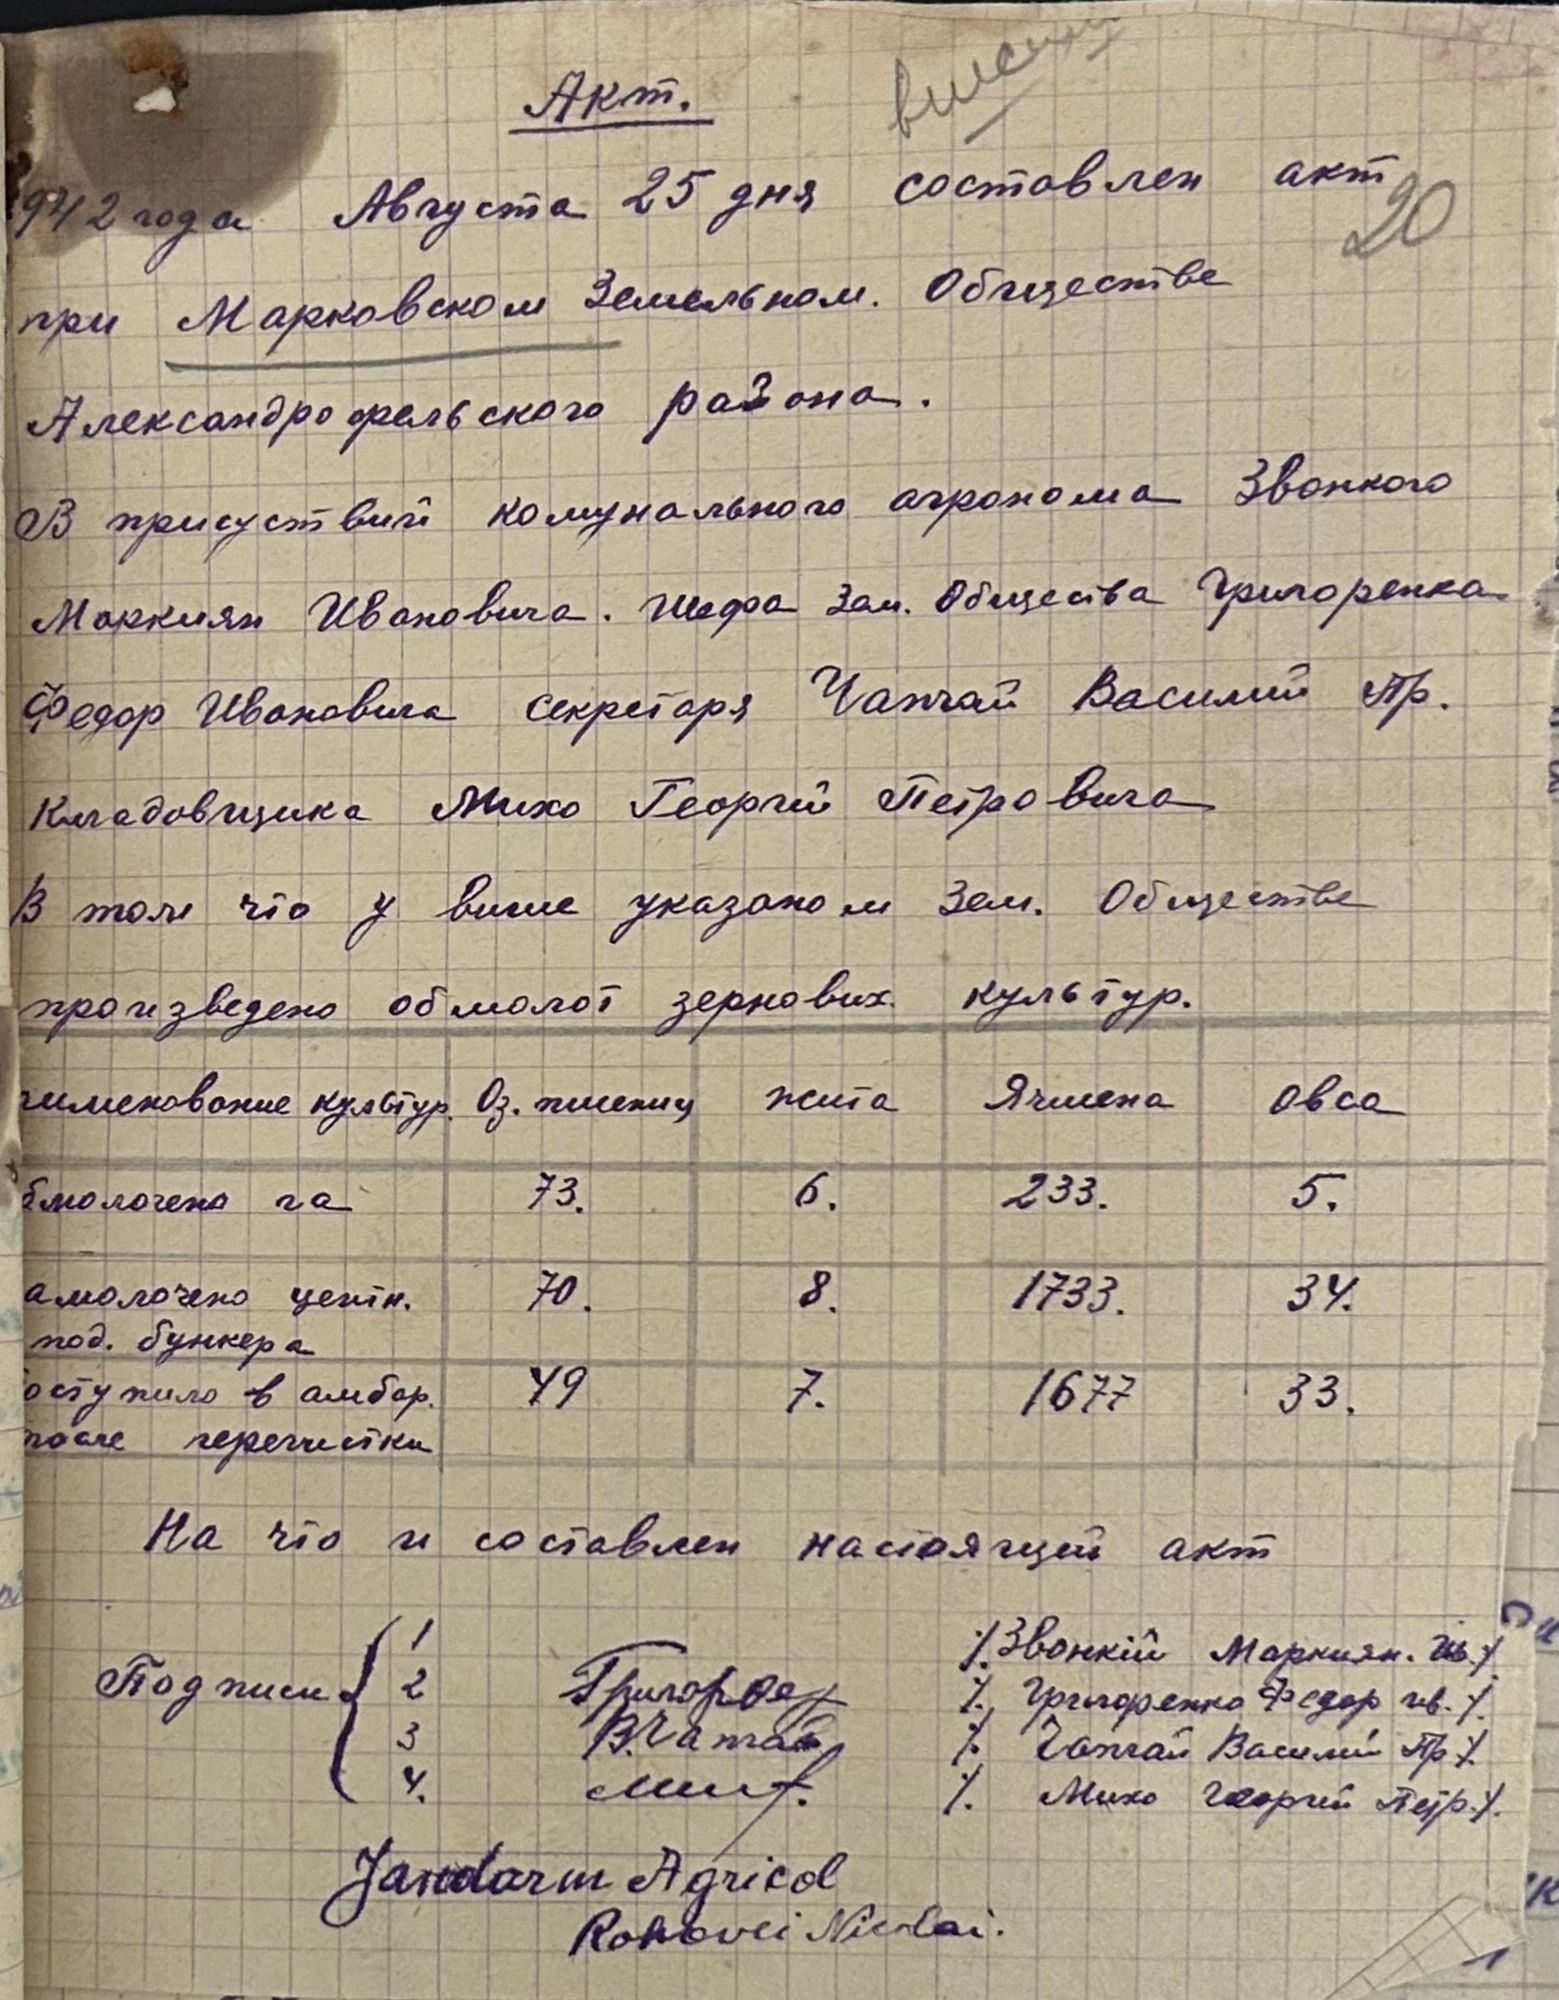 Акт.
942 года Августа 25 дня составлен акт
20
при Марковском Земельном. Обществе
Александрофельського района.
В присуствий комунального агронома Звонкого
Маркиян Ивановича. Шефа Зем. Общества Григоренка
Федор Ивановича секретаря Чапчай Василий Пр.
Кладовщика Михо Георгий Петровича
В том что у више указаном Зем. Обществе
произведено обмолот зернових культур.
именование культур. Оз. пшениц жита Ячменя овса
бмолочено га 73. 6. 233. 5.
амолочено центн. 70. 8. 1733. 34.
под. бункера
оступило в амбар. 49 7. 1677 33.
после перечистки
На что и составлен настоящий акт
Подписи 1 /. Звонкий Маркиян. Ив./.
2 /. Григоренко Федор ив./.
3 В.Чапчай /. Чапчай Василий Пр./.
4. /. Михо Георгий Петр./.
Jandarm Agricol
Nicolai.